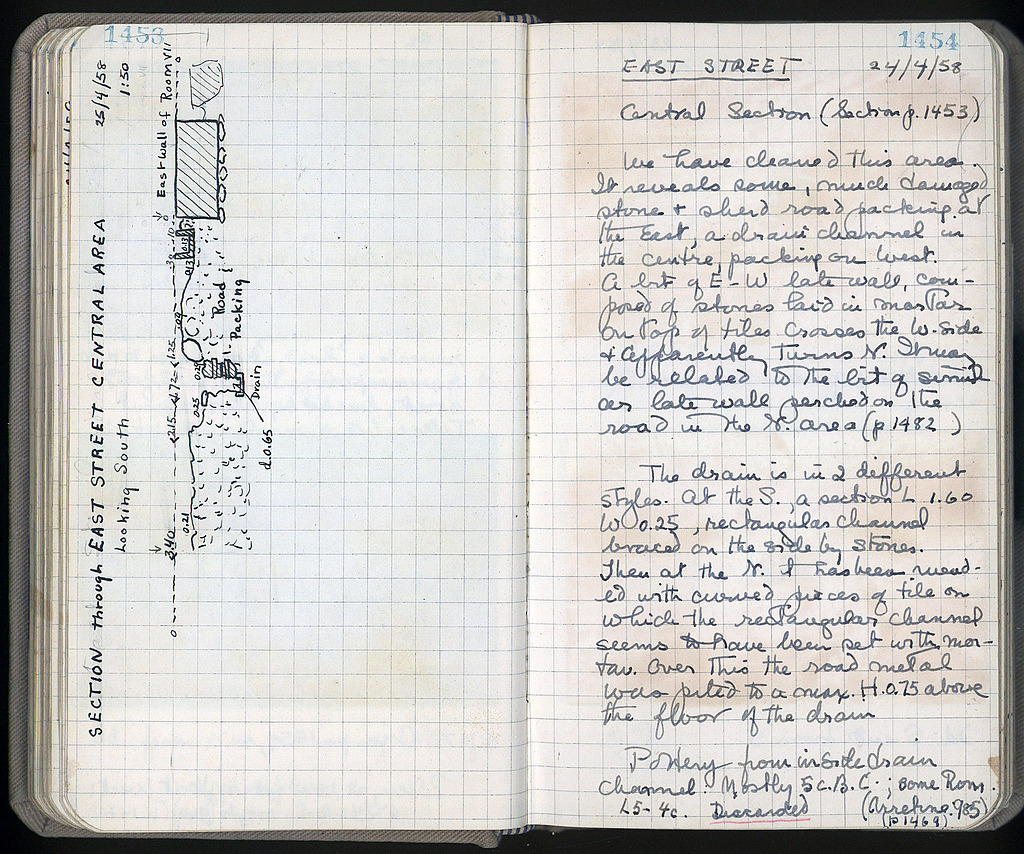 1453
SECTION through EAST STREET CENTRAL AREA
25/4/58
Looking South
1:50
East Wall of Room VII
0
3.40
2.15
1.72
1.25
0.21
0.25
Road
Packing
Drain
d.0.65
1454
EAST STREET 24/4/58
Central Section (Section p. 1453)
We have cleaned this area.
It reveals some, much damaged
stone + sherd road packing at
the East, a drain channel in
the centre, packing on West.
A bit of E-W late wall, com-
posed of stones laid in mortar
on top of tiles crosses the W. side
& apparently turns N. It may
be related to the bit of simil-
ar late wall perched on the
road in the N. area (p 1482)
The drain is in 2 different
styles. At the S., a section L 1.60
W 0.25, rectangular channel
braced on the side by stones.
Then at the N. it has been mend-
ed with curved pieces of tile on
which the rectangular channel
seems to have been set with mor-
tar. Over this the road metal
was piled to a max. H. 0.75 above
the floor of the drain
Pottery from inside drain
channel: Mostly 5 c. B.C.; some Rom.
L5-4c. Discarded (Arretine. 985)
(p 1469)